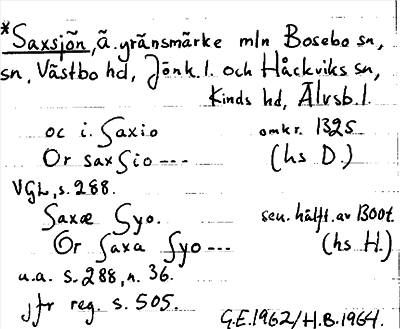 *Saxsjön, ä. gränsmärke mln Bosebo sn,
sn, Västbo hd, Jönk. l. och Håckviks sn,
Kinds hd, Älvsb. l.
oc i. saxio omkr. 1325
Or saxsio --- (hs D.)
VGL, s. 288.
Saxæ Syo. sen. hälft. av 1300t.
Or saxa syo --- (hs H.)
u.a. s. 288, n. 36.
jfr reg. s. 505.
G.E. 1962/H.B. 1964.